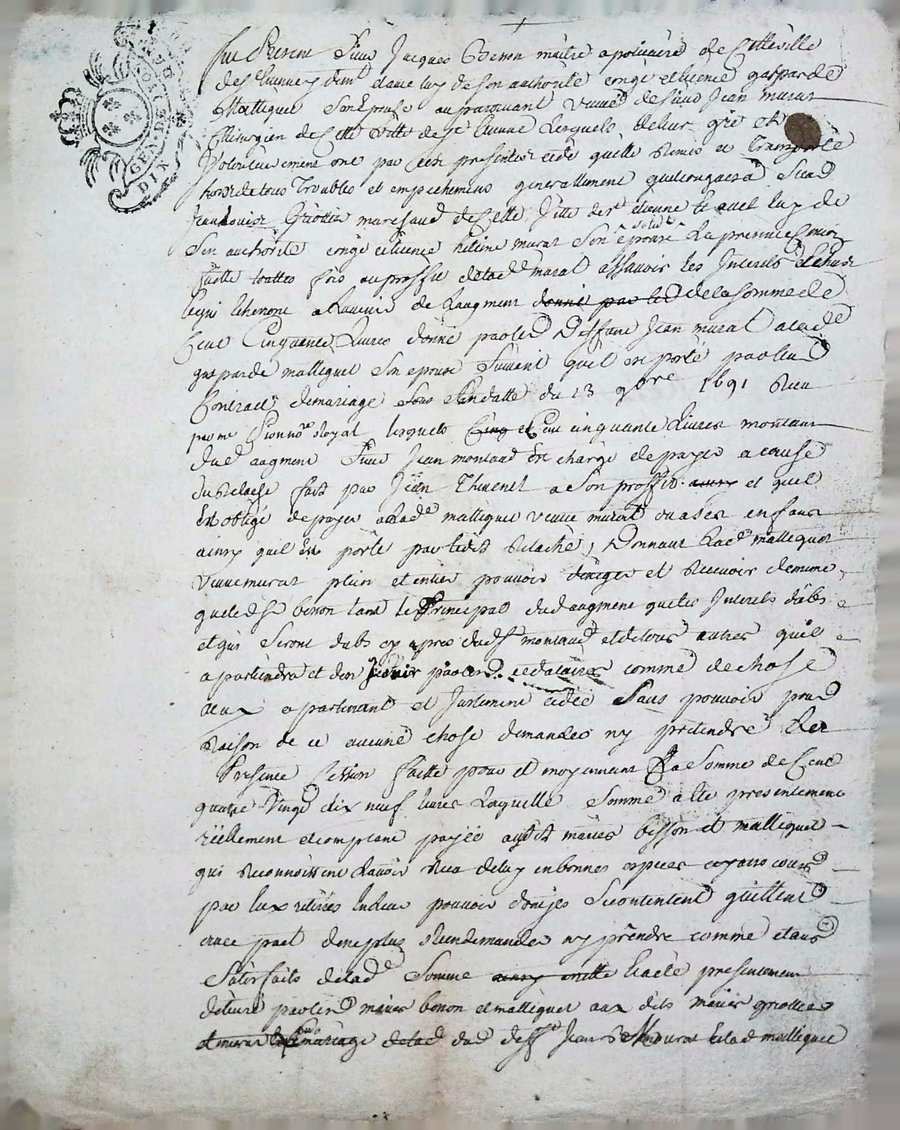 GEN. DE
DIN
fut Present Sieur Jacques Benon maitre apoticaire de Cette ville
de St Etienne dint dame luy de son authorité congé et licence gasparde
Malliquet Son Epouse auparavant veuve de Sieur Jean murat
Chirurgien de Cette Ville de St Etienne Lesquels de leur gré et
Volontairement ont par ces presentes cédé quitté Remis et Transporté
hors de tous Troubles et empechemens generallement quelconques a Sieur
Jean Louis Griottier marchand de Cette Ville de St Etienne
Son authorité congé et licence murat Son Epouse La presente Cession
faitte touttes fois au proffit de lad murat assavoir les Interets
de l'augment donné par led de la somme de
Cent Cinquante Livres donné par led Deffunt Jean murat a lad
gasparde malliquet Son epouse Suivant quil est porté par leur
Contract de mariage Sous Sa datte du 13 9bre 1691 Receu
par me Royal lesquels Cent cinquante Livres montant
dud augment Sieur Jean montaud est chargé de payer a cause
du Relache fait par Jean Thivenet a Son proffit et quil
Est obligé de payer a lad malliquet veuve murat ou a ses enfans
ainsy quil Est porté par ledit Relache, Donnant lad malliquet
veuve murat plein et entier pouvoir dexiger et Recevoir de meme
que led Sr benon tant le Principal dud augment que les Interets
et qui Seront dubs cy apres dud Sr montaud et de tous autres quil
apartiendra et den jouir par les cedataires comme de chose
a eux apartenant et Justement cédée Sans pouvoir pour
Raison de ce aucune chose demander ny pretendre La
Presente Cession faitte pour et moyennant La Somme de Cent
quatre Vingt dix neuf livres Laquelle Somme a été presentement
réellement et comptant payée audits mariés benon et malliquet
qui Reconnoissent Lavoir Receu de luy en bonnes especes ayant cours
par Eux retirées en leur pouvoir dont ils Se contentent quittent
avec pact de ne plus Rien demander ny prendre comme etant
Satisfaits de lad Somme presentement
par les mariés benon et malliquet aux dits mariés griottier
et murat mariage dud defft Jean Murat et lad malliquet